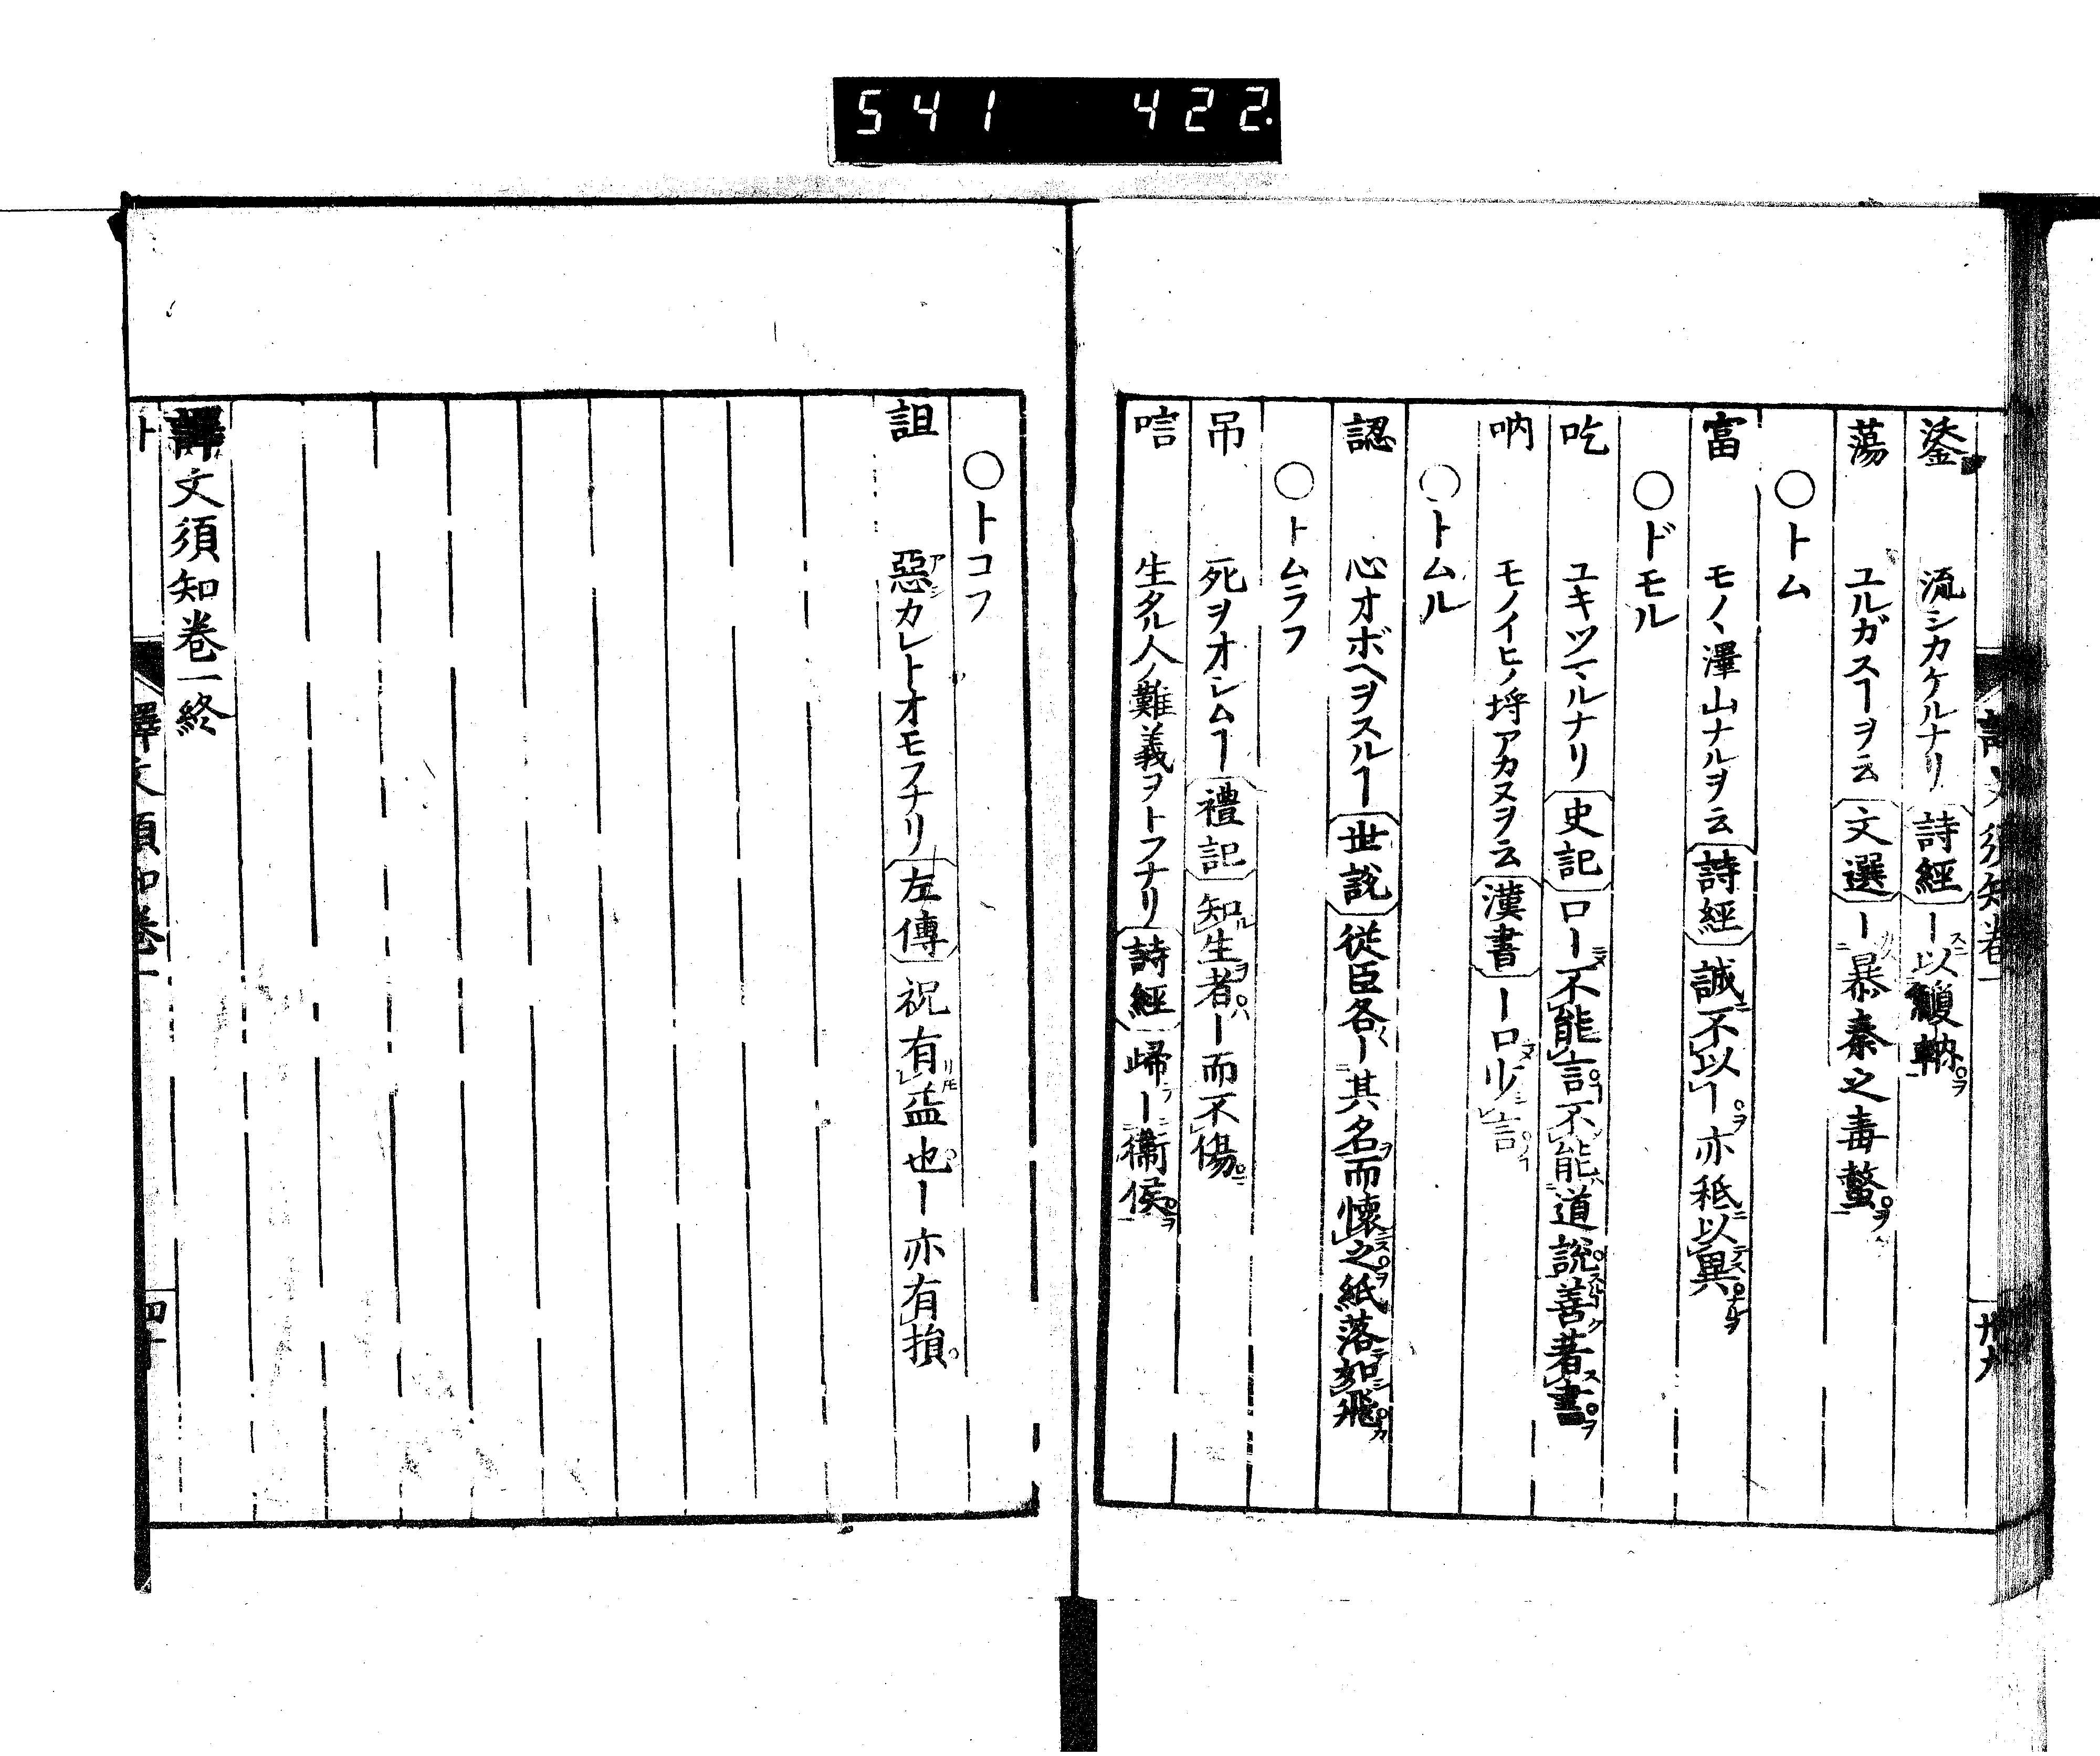 541 422.
鋈 流シカケルナリ 詩經 ー以觼軜
蕩 ユルガスヿヲ云 文選 ー暴秦之毒螫
○トム
富 モノヽ澤山ナルヲ云 詩經 誠不以ー亦秖以異
○ドモル
吃 ユキツマルナリ 史記 口ー不能言不能道説善著書
吶 モノイヒノ埒アカヌヲ云 漢書 ー口少言
○トムル
認 心オボヘヲスルヿ 世説 從臣各ー其名而懷之紙落如飛
○トムラフ
吊 死ヲオシムヿ 禮記 知生者ー而不傷
唁 生タル人ノ難義ヲトフナリ 詩經 歸ー衞侯
○トコフ
詛 惡カレトオモフナリ 左傳 祝有益也ー亦有損
譯文須知卷一終
ト 譯文須知卷一 四十